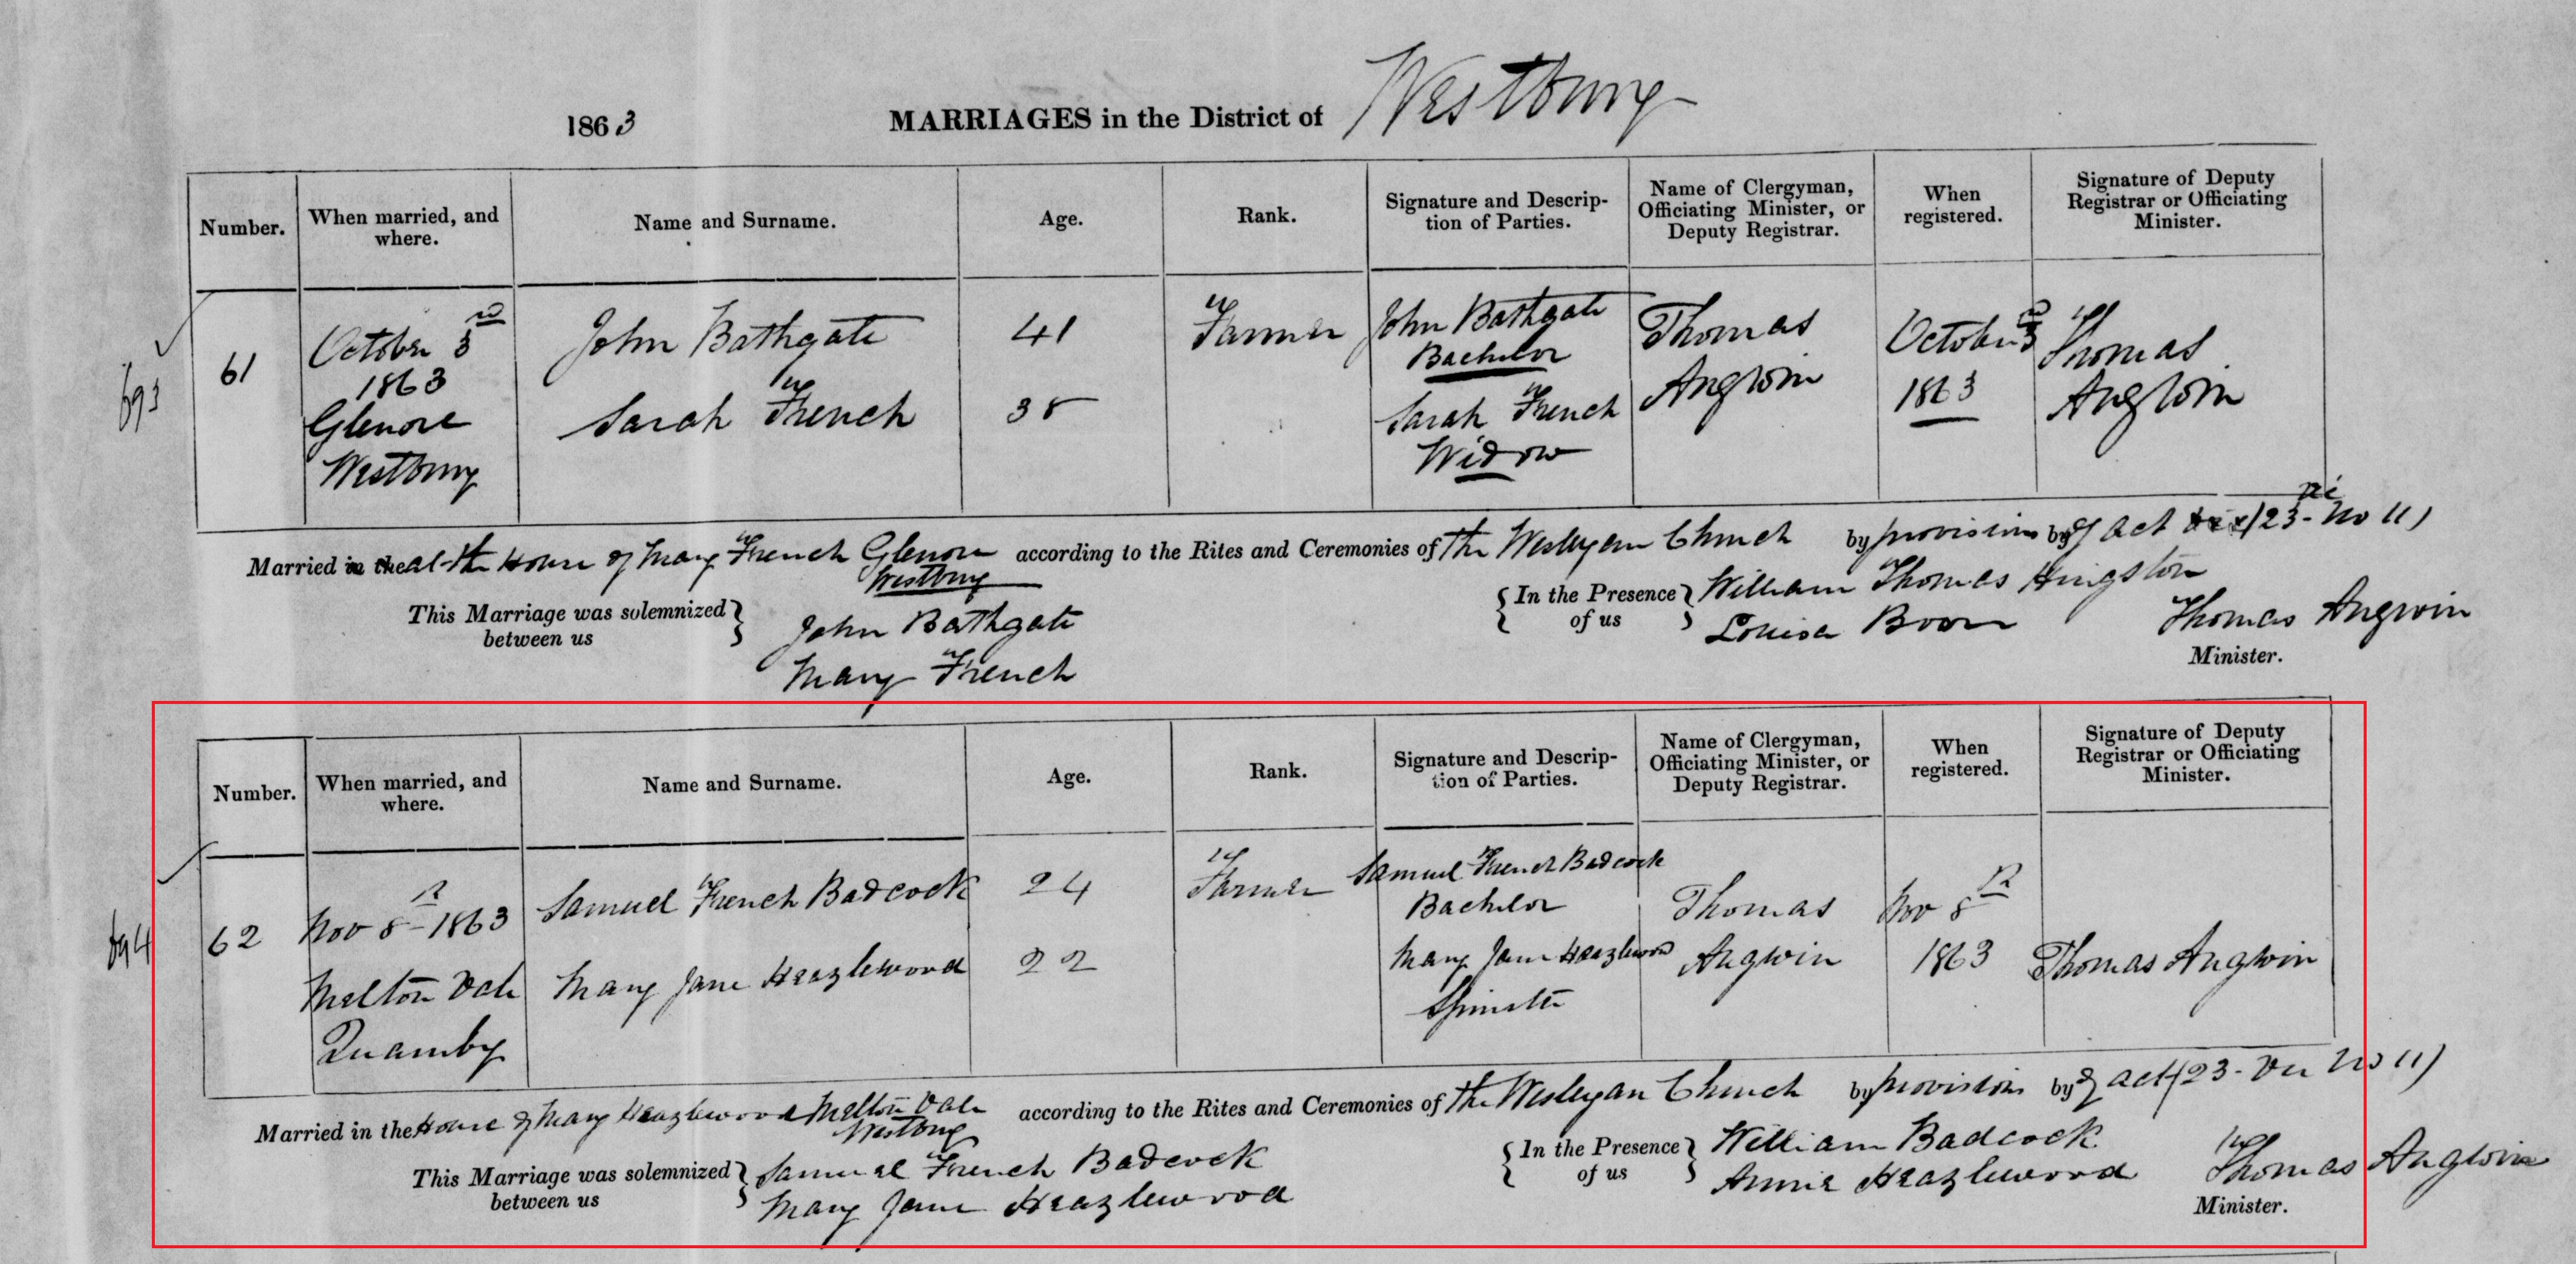 1863 MARRIAGES in the District of Westbury
Number. When married, and where. Name and Surname. Age. Rank. Signature and Description of Parties. Name of Clergyman, Officiating Minister, or Deputy Registrar. When registered. Signature of Deputy Registrar or Officiating Minister.
693
61
October 3rd
1863
Glenore
Westbury
John Bathgate
Sarah French
41
38
Farmer
John Bathgate
Bachelor
Sarah French
Widow
Thomas
Angwin
October 3rd
1863
Thomas
Angwin
Married in the at the House of Mary French Glenore according to the Rites and Ceremonies of The Wesleyan Church by provision by of Act (23 Vic No 11)
Westbury
This Marriage was solemnized between us
John Bathgate
Mary French
In the Presence of us
William Thomas Kingston
Louisa Boon
Thomas Angwin
Minister.
Number. When married, and where. Name and Surname. Age. Rank. Signature and Description of Parties. Name of Clergyman, Officiating Minister, or Deputy Registrar. When registered. Signature of Deputy Registrar or Officiating Minister.
694
62
Nov 8th 1863
Melton Vale
Quamby
Samuel French Badcock
Mary Jane Heazlewood
24
22
Farmer
Samuel French Badcock
Bachelor
Mary Jane Heazlewood
Spinster
Thomas
Angwin
Nov 8th
1863
Thomas Angwin
Married in the House of Mary Heazlewood Melton Vale according to the Rites and Ceremonies of The Wesleyan Church by provision by of act (23 Vic No 11)
Westbury
This Marriage was solemnized between us
Samuel French Badcock
Mary Jane Heazlewood
In the Presence of us
William Badcock
Annie Heazlewood
Thomas Angwin
Minister.